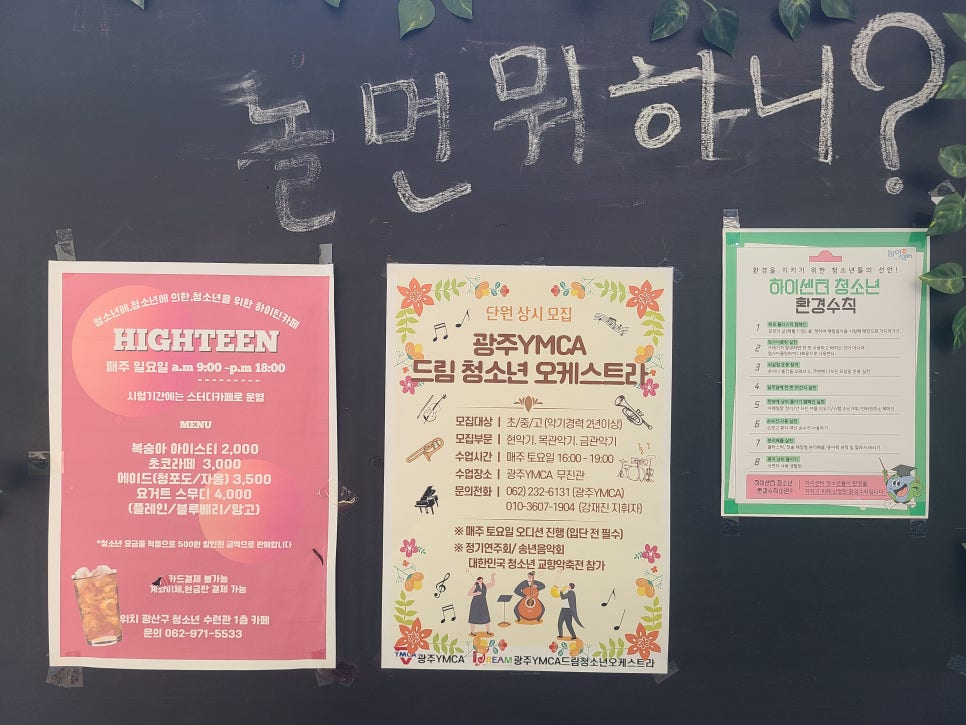 놀면뭐하니?
청소년에,청소년에 의한,청소년을 위한 하이틴카페
HIGHTEEN
매주 일요일 a.m 9:00 ~p.m 18:00
시험기간에는 스터디카페로 운영
MENU
복숭아 아이스티 2,000
초코라떼 3,000
에이드(청포도/자몽) 3,500
요거트 스무디 4,000
(플레인/블루베리/망고)
*청소년 요금을 적용으로 500원 할인된 금액으로 판매합니다
카드결제 불가능
계좌이체,현금만 결제 가능
위치 광산구 청소년 수련관 1층 카페
문의 062-971-5533
단원 상시 모집
광주YMCA
드림 청소년 오케스트라
모집대상 | 초/중/고 (악기경력 2년이상)
모집부문 | 현악기, 목관악기, 금관악기
수업시간 | 매주 토요일 16:00 - 19:00
수업장소 | 광주YMCA 무진관
문의전화 | 062) 232-6131 (광주YMCA)
010-3607-1904 (강재진 지휘자)
※ 매주 토요일 오디션 진행 (입단 전 필수)
※ 정기연주회/ 송년음악회
대한민국 청소년 교향악축전 참가
YMCA 광주YMCA DREAM 광주YMCA드림청소년오케스트라
환경을 지키기 위한 청소년들의 선언!
하이센터 청소년
환경수칙
1
2
3
4
5
6 손수건 사용 실천
7 분리배출 실천
8
하이센터 청소년
환경수칙이란?
하이센터 청소년들이 환경을
지키기 위해 선정한 환경수칙입니다